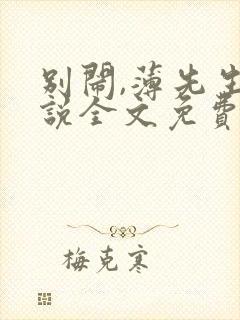 別鬧,薄先生
說全文免費
梅克寒